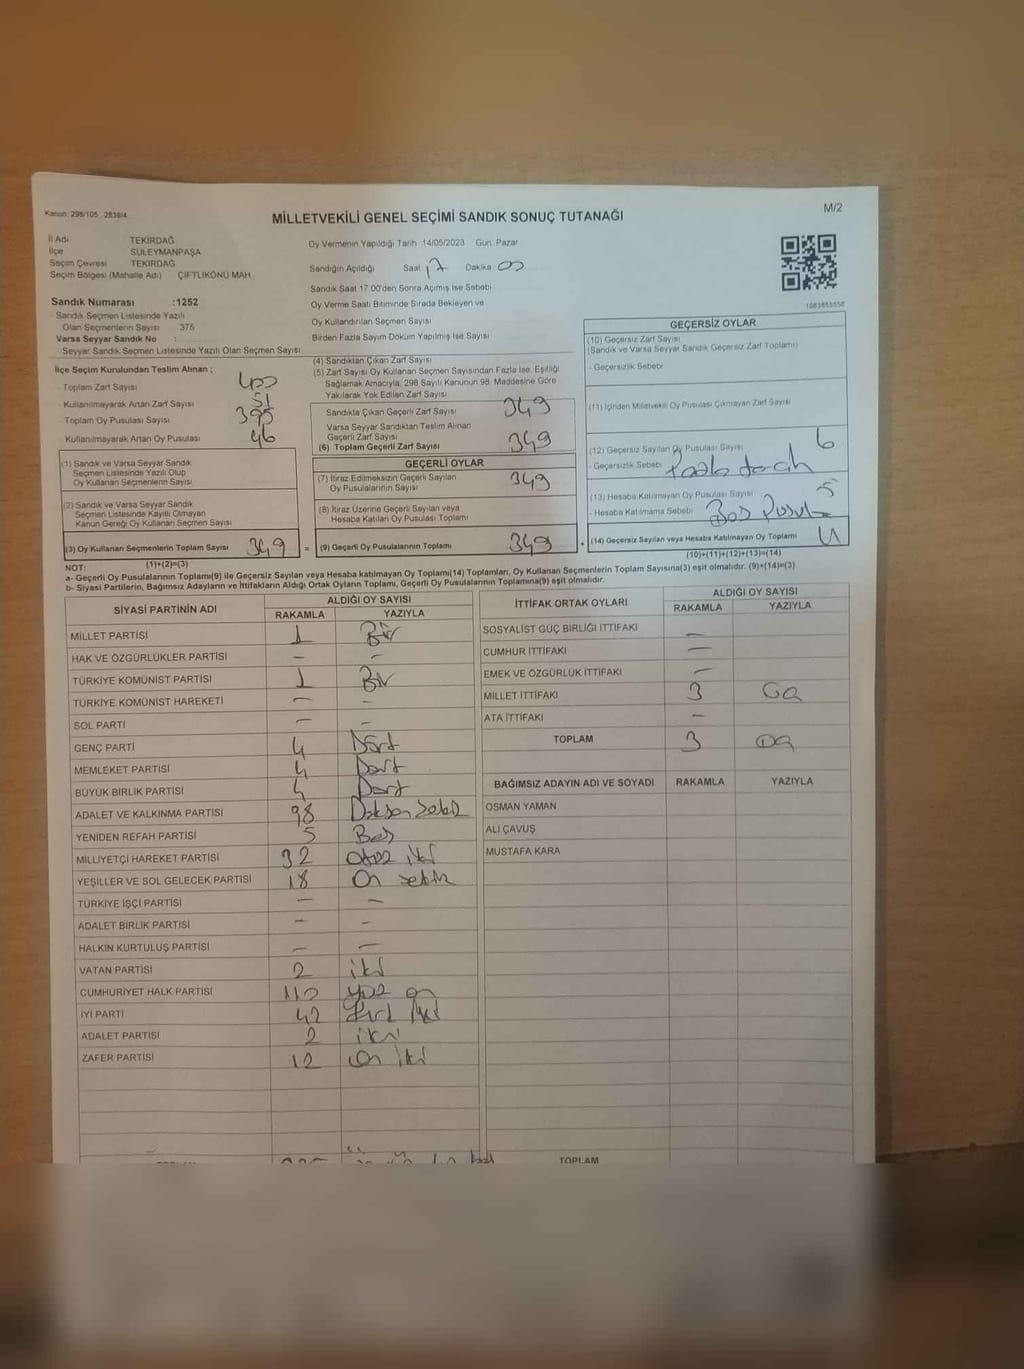 Kanun: 298/105, 2839/4
MİLLETVEKİLİ GENEL SEÇİMİ SANDIK SONUÇ TUTANAĞI
M/2
İl Adı TEKİRDAĞ
İlçe SÜLEYMANPAŞA
Seçim Çevresi TEKİRDAĞ
Seçim Bölgesi (Mahalle Adı) ÇİFTLİKÖNÜ MAH.
Sandık Numarası :1252
Sandık Seçmen Listesinde Yazılı
Olan Seçmenlerin Sayısı 375
Varsa Seyyar Sandık No :
Seyyar Sandık Seçmen Listesinde Yazılı Olan Seçmen Sayısı
Oy Vermenin Yapıldığı Tarih 14/05/2023 Gün: Pazar
Sandığın Açıldığı Saat 17 Dakika 00
Sandık Saat 17:00'den Sonra Açılmış İse Sebebi
Oy Verme Saati Bitiminde Sırada Bekleyen ve
Oy Kullandırılan Seçmen Sayısı
Birden Fazla Sayım Döküm Yapılmış İse Sayısı
İlçe Seçim Kurulundan Teslim Alınan ;
- Toplam Zarf Sayısı 400
- Kullanılmayarak Artan Zarf Sayısı 51
- Toplam Oy Pusulası Sayısı 395
- Kullanılmayarak Artan Oy Pusulası 46
(1) Sandık ve Varsa Seyyar Sandık
Seçmen Listesinde Yazılı Olup
Oy Kullanan Seçmenlerin Sayısı
(2) Sandık ve Varsa Seyyar Sandık
Seçmen Listesinde Kayıtlı Olmayan
Kanun Gereği Oy Kullanan Seçmen Sayısı
(3) Oy Kullanan Seçmenlerin Toplam Sayısı 349
(1)+(2)=(3)
(4) Sandıktan Çıkan Zarf Sayısı
(5) Zarf Sayısı Oy Kullanan Seçmen Sayısından Fazla İse, Eşitliği
Sağlamak Amacıyla, 298 Sayılı Kanunun 98. Maddesine Göre
Yakılarak Yok Edilen Zarf Sayısı
Sandıkta Çıkan Geçerli Zarf Sayısı 349
Varsa Seyyar Sandıktan Teslim Alınan
Geçerli Zarf Sayısı
(6) Toplam Geçerli Zarf Sayısı 349
GEÇERLİ OYLAR
(7) İtiraz Edilmeksizin Geçerli Sayılan
Oy Pusulalarının Sayısı 349
(8) İtiraz Üzerine Geçerli Sayılan veya
Hesaba Katılan Oy Pusulası Toplamı
= (9) Geçerli Oy Pusulalarının Toplamı 349
1083855558
GEÇERSİZ OYLAR
(10) Geçersiz Zarf Sayısı
(Sandık ve Varsa Seyyar Sandık Geçersiz Zarf Toplamı)
- Geçersizlik Sebebi
(11) İçinden Milletvekili Oy Pusulası Çıkmayan Zarf Sayısı
(12) Geçersiz Sayılan Oy Pusulası Sayısı 6
- Geçersizlik Sebebi
(13) Hesaba Katılmayan Oy Pusulası Sayısı 5
- Hesaba Katılmama Sebebi Boş Pusula
+ (14) Geçersiz Sayılan veya Hesaba Katılmayan Oy Toplamı
(10)+(11)+(12)+(13)=(14)
NOT:
a- Geçerli Oy Pusulalarının Toplamı(9) ile Geçersiz Sayılan veya Hesaba katılmayan Oy Toplamı(14) Toplamları, Oy Kullanan Seçmenlerin Toplam Sayısına(3) eşit olmalıdır. (9)+(14)=(3)
b- Siyasi Partilerin, Bağımsız Adayların ve İttifakların Aldığı Ortak Oyların Toplamı, Geçerli Oy Pusulalarının Toplamına(9) eşit olmalıdır.
SİYASİ PARTİNİN ADI ALDIĞI OY SAYISI
RAKAMLA YAZIYLA
MİLLET PARTİSİ 1 Bir
HAK VE ÖZGÜRLÜKLER PARTİSİ - -
TÜRKİYE KOMÜNİST PARTİSİ 1 Bir
TÜRKİYE KOMÜNİST HAREKETİ - -
SOL PARTİ - -
GENÇ PARTİ 4 Dört
MEMLEKET PARTİSİ 4 Dört
BÜYÜK BİRLİK PARTİSİ 4 Dört
ADALET VE KALKINMA PARTİSİ 98 Doksan sekiz
YENİDEN REFAH PARTİSİ 5 Beş
MİLLİYETÇİ HAREKET PARTİSİ 32 otuz iki
YEŞİLLER VE SOL GELECEK PARTİSİ 18 On sekiz
TÜRKİYE İŞÇİ PARTİSİ - -
ADALET BİRLİK PARTİSİ - -
HALKIN KURTULUŞ PARTİSİ - -
VATAN PARTİSİ 2 iki
CUMHURİYET HALK PARTİSİ 110 yüz on
İYİ PARTİ 42 Kırk iki
ADALET PARTİSİ 2 iki
ZAFER PARTİSİ 12 On iki
TOPLAM
İTTİFAK ORTAK OYLARI ALDIĞI OY SAYISI
RAKAMLA YAZIYLA
SOSYALİST GÜÇ BİRLİĞİ İTTİFAKI -
CUMHUR İTTİFAKI -
EMEK VE ÖZGÜRLÜK İTTİFAKI -
MİLLET İTTİFAKI 3
ATA İTTİFAKI -
TOPLAM 3
BAĞIMSIZ ADAYIN ADI VE SOYADI RAKAMLA YAZIYLA
OSMAN YAMAN
ALİ ÇAVUŞ
MUSTAFA KARA
TOPLAM